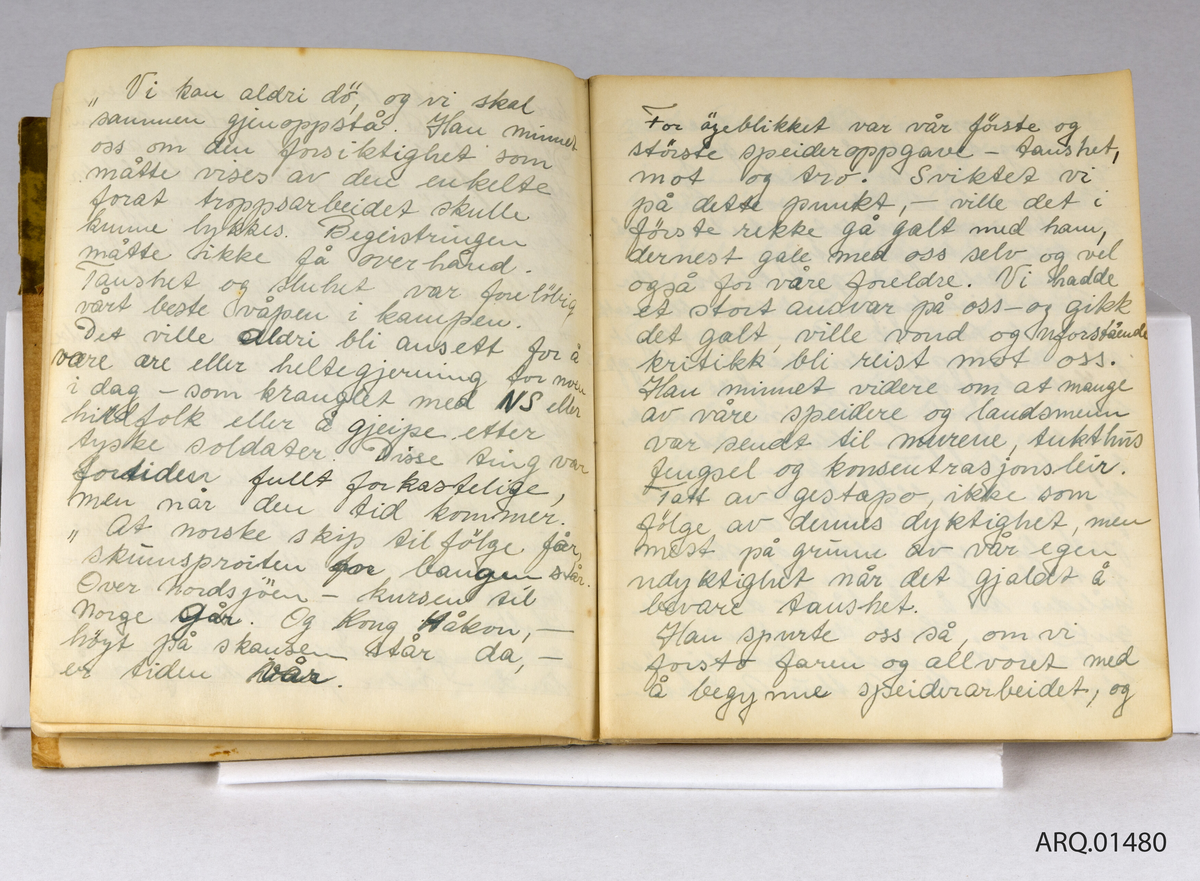 „ Vi kan aldri dö, og vi skal
sammen gjenoppstå. Han minnet
oss om den forsiktighet som
måtte vises av den enkelte
forat troppsarbeidet skulle
kunne lykkes. Begeistringen
måtte ikke få overhånd.
Taushet og sluhet var foreløbig
vårt beste våpen i kampen.
Det ville aldri bli ansett for å
være ære eller heltegjerning for noen
i dag – som kranglet med NS eller
hirdfolk eller å gjeipe etter
tyske soldater. Disse ting var
fortiden fullt forkastelige,
men når den tid kommer.
„ At norske skip til følge får,
skumsprøiten for baugen står.
Over Nordsjöen – kursen til
Norge går. Og Kong Håkon, –
høyt på skansen står da, –
er tiden vår.
For öyeblikket var vår förste og
störste speideroppgave – taushet,
mot og tro. Sviktet vi
på dette punkt, – ville det i
förste rekke gå galt med ham,
dernest gale med oss selv og vel
også for våre foreldre. Vi hadde
et stort andvar på oss – og gikk
det galt, ville vond og uforstående
kritikk bli reist mot oss.
Han minnet videre om at mange
av våre speidere og landsmenn
var sendt til murene, tukthus
fengsel og konsentrasjonsleir.
Tatt av gestapo, ikke som
fölge av dennes dyktighet, men
mest på grunn av vår egen
udyktighet når det gjaldt å
bevare taushet.
Han spurte oss så, om vi
forsto faren og allvoret med
å begynne speiderarbeidet, og
ARQ.01480